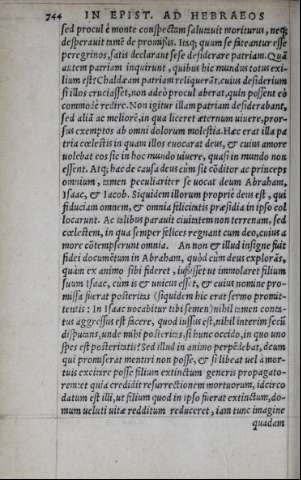 744 IN EPIST. AD HEBRAEOS
sed procul è monte conspectam salutauit moriturus, neq;
desperauit tamē de promissis. Itaq; quum se fateantur esse
peregrinos, satis declarāt sese desiderare patriam. Quā
autem patriam inquirunt, quibus hic mundus totus exi-
lium est? Chaldæam patriam reliquerāt, cuius desiderium
si illos cruciasset, non adeò procul aberat, quin possent eò
commodè redire. Non igitur illam patriam desiderabant,
sed aliā ac meliorē, in qua liceret æternum uiuere, pror-
sus exemptos ab omni dolorum molestia. Hæc erat illa pa
tria cœlestis in quam illos euocarat deus, & cuius amore
uolebat eos sic in hoc mundo uiuere, quasi in mundo non
essent. Atq; hac de causa deus cùm sit cōditor ac princeps
omnium, tamen peculiariter se uocat deum Abraham,
Isaac, & Iacob. Siquidem illorum propriè deus est, qui
fiduciam omnem, & omnia felicitatis præsidia in ipso col
locarunt. Ac talibus parauit ciuitatem non terrenam, sed
cœlestem, in qua semper felices regnant cum deo, cuius a
more cōtempserunt omnia. An non & illud insigne fuit
fidei documētum in Abraham, quòd cùm deus explorās,
quàm ex animo sibi fideret, iussisset ut immolaret filium
suum Isaac, cum is & unicus esset, & cuius nomine pro-
missa fuerat posteritas (siquidem hic erat sermo promit-
tentis: In Isaac uocabitur tibi semen) nihil tamen contā-
tus aggressus est facere, quod iussus est, nihil interim secū
disputans, unde mihi posteritas, si hunc occido, in quo uno
spes est posteritatis? Sed illud in animo perpēdebat, deum
qui promiserat mentiri non posse, & si libeat uel à mor-
tuis excitare posse filium extinctum generis propagato-
rem: et quia credidit resurrectionem mortuorum, idcirco
datum est illi, ut filium quod in ipso fuerat extinctum, do-
mum ueluti uitæ redditum reduceret, iam tunc imagine
quadam